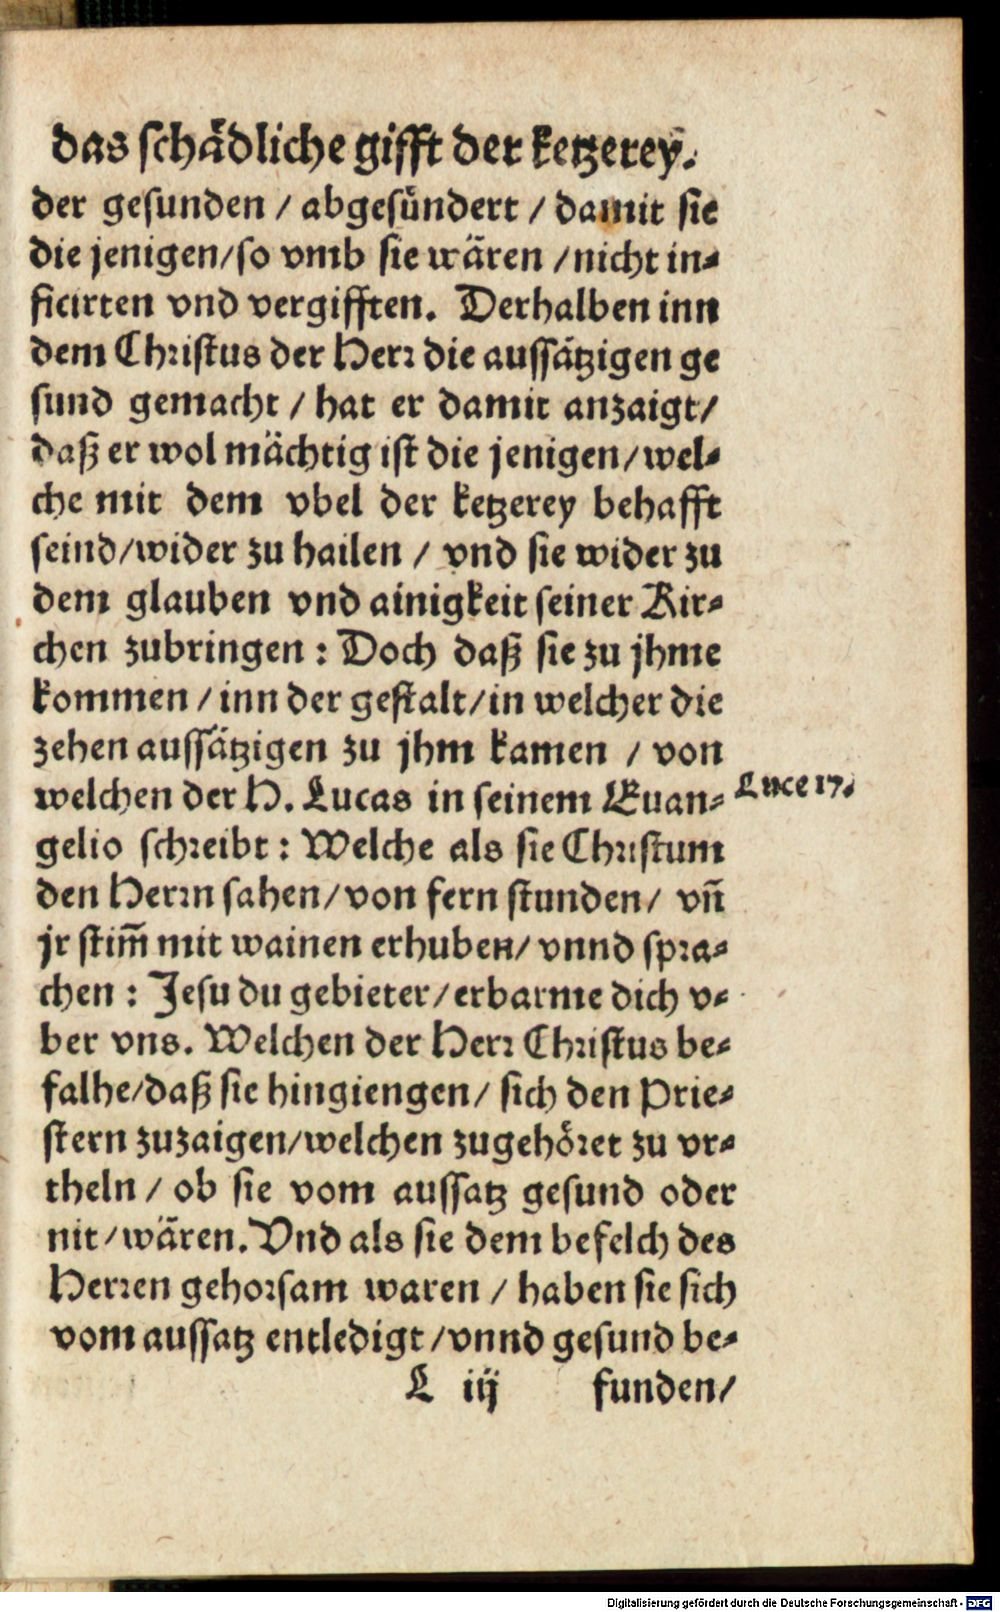 das schädliche gifft der ketzerey.
der gesunden / abgesündert / damit sie
die jenigen/so vmb sie wären /nicht in-
ficirten vnd vergifften. Derhalben inn
dem Christus der Herr die aussätzigen ge
sund gemacht / hat er damit anzaigt/
daß er wol mächtig ist die jenigen/wel-
che mit dem vbel der ketzerey behafft
seind/wider zu hailen / vnd sie wider zu
dem glauben vnd ainigkeit seiner Kir-
chen zubringen : Doch daß sie zu jhme
kommen /inn der gestalt/in welcher die
zehen aussätzigen zu jhm kamen / von
welchen der H. Lucas in seinem Euan-
Luce 17.
gelio schreibt : Welche als sie Christum
den Herrn sahen/von fern stunden/ vñ
jr stim̃ mit wainen erhuben/ vnnd spra-
chen : Jesu du gebieter/erbarme dich v-
ber vns. Welchen der Herr Christus be-
falhe/daß sie hingiengen/ sich den Prie-
stern zuzaigen/welchen zugehöret zu vr-
theln / ob sie vom aussatz gesund oder
nit/wären. Vnd als sie dem befelch des
Herren gehorsam waren / haben sie sich
vom aussatz entledigt /vnnd gesund be-
L iij funden/
Digitalisierung gefördert durch die Deutsche Forschungsgemeinschaft - DFG